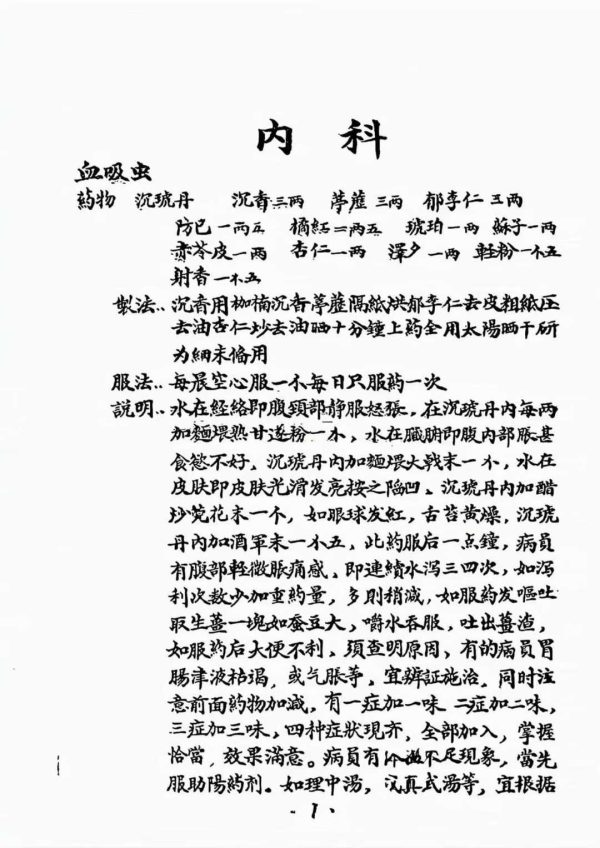 内 科
血吸虫
药物 沉琥丹 沉香三两 葶藶三两 郁李仁五两
防已一两五 橘紅二两五 琥珀一两 蘇子一两
赤苓皮一两 杏仁一两 澤夕一两 軽粉一小五
射香一小五
製法..沉香用柚楠沉香葶藶隔紙烘郁李仁去皮粗紙压
去油杏仁炒去油晒十分鐘上药全用太陽晒干研
为細末俻用
服法..每晨空心服一小每日只服药一次
説明..水在経絡即腹頸部静服怒張,在沉琥丹内每两
加麵煨熟甘遂粉一小,水在臓腑即腹内部脹甚
食慾不好,沉琥丹内加麵煨大戟末一小,水在
皮肤即皮肤光滑发亮按之陥凹、沉琥丹内加醋
炒芫花末一个,如眼球发紅,舌苔黄燥,沉琥
丹内加酒軍末一小五,此药服后一点鐘,病員
有腹部軽微脹痛感、即連續水泻三四次,如泻
利次数少加重药量,多則稍減,如服药发嘔吐
取生薑一塊如蚕豆大,嚼水吞服,吐出薑渣,
如服药后大便不利,須查明原因,有的病員胃
腸津液枯竭,或气脹等,宜辨証施治,同时注
意前面药物加減,有一症加一味 二症加二味,
三症加三味,四种症狀現齐,全部加入,掌握
恰當,效果滿意。病員有 不足現象,當先
服助陽药剂。如理中湯, 真武湯等,宜根据
- 1 、